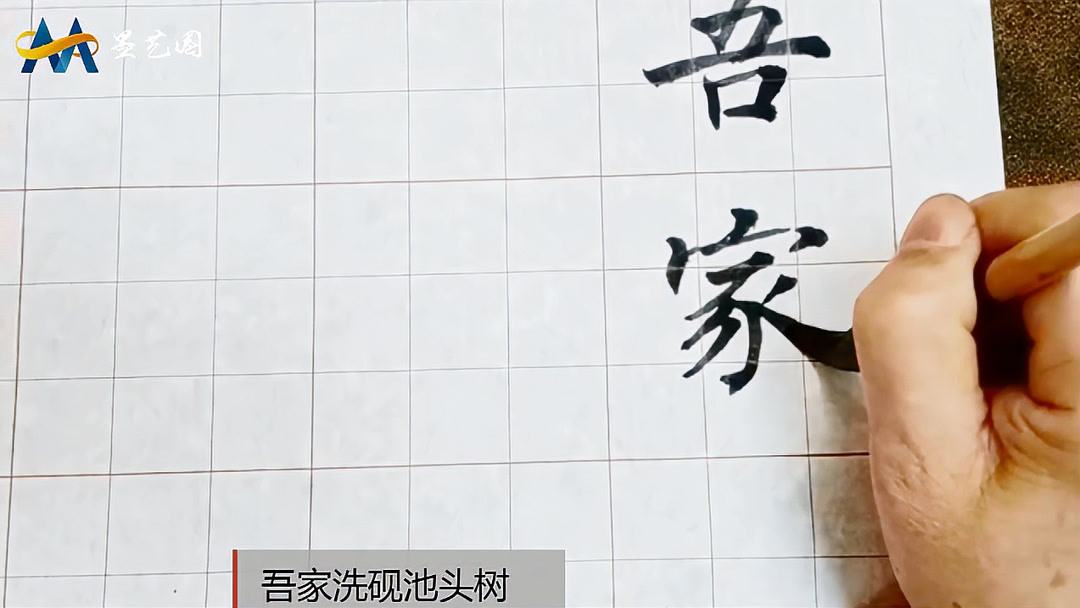 墨艺园
吾家
吾家洗砚池头树